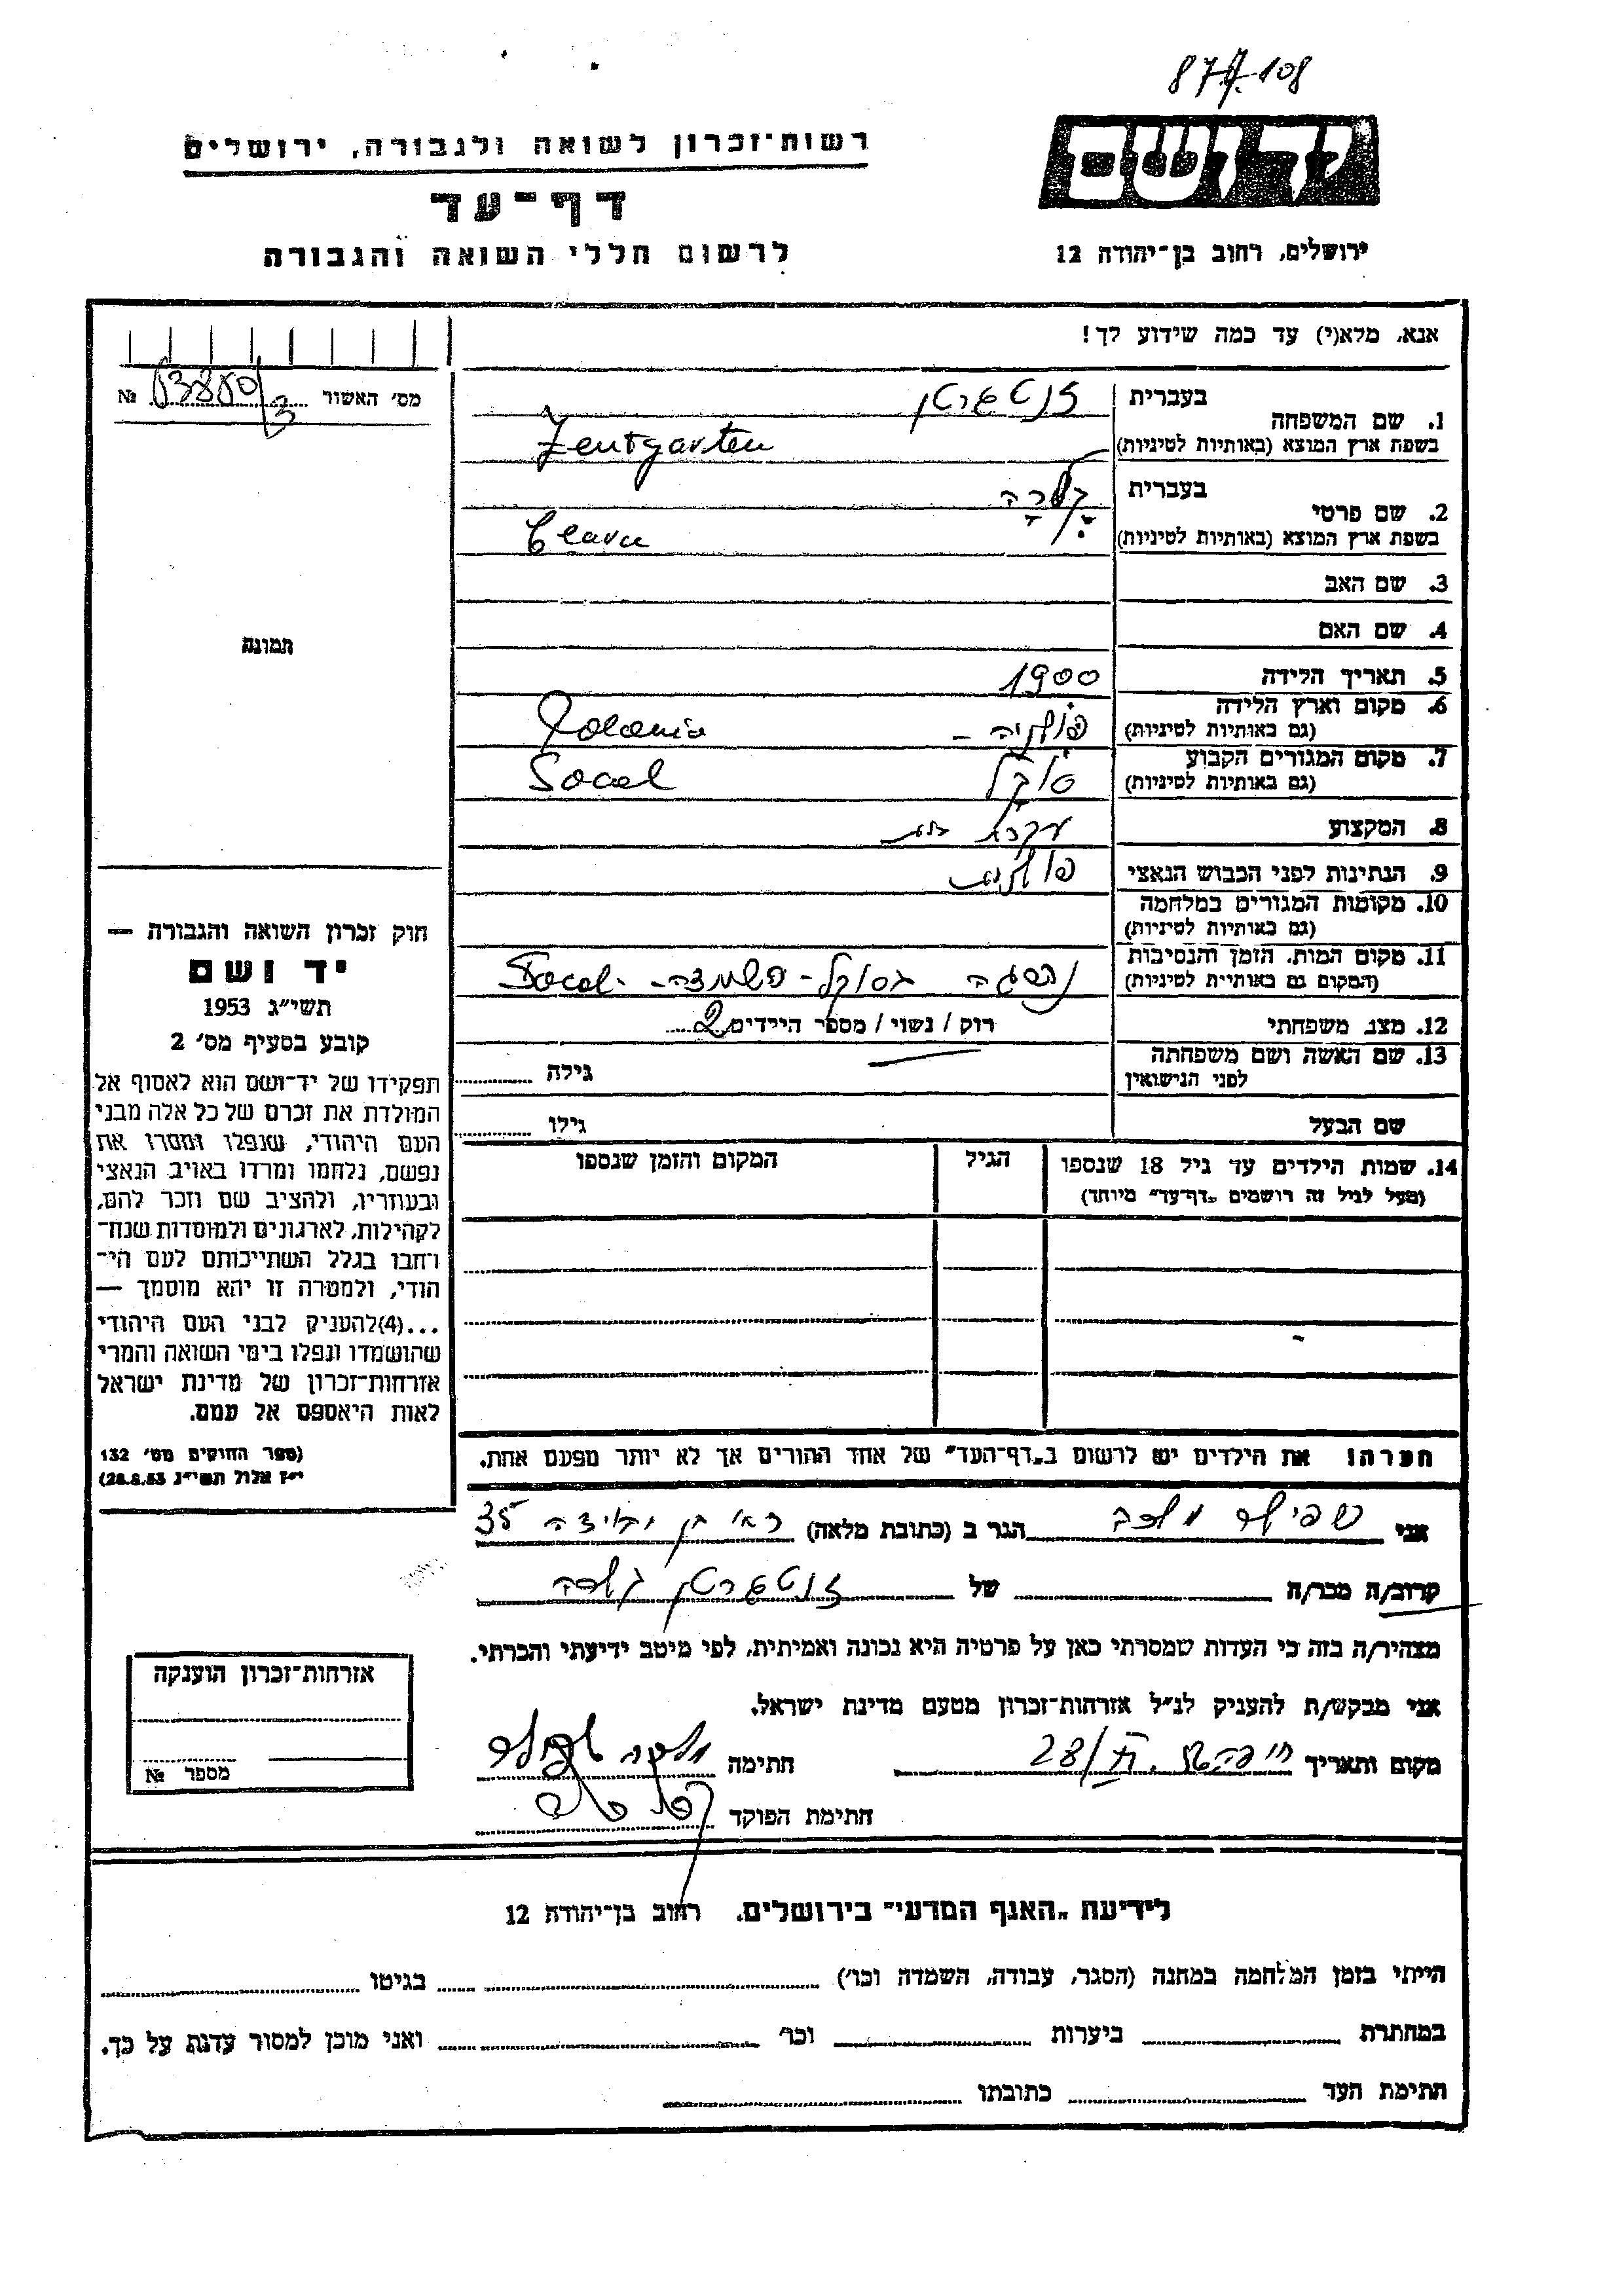 87/108
רשות־זכרון לשואה ולגבורה, ירושלים
יד ושם
דף־עד
לרשום חללי השואה והגבורה
ירושלים, רחוב בן־יהודה 12
אנא, מלא(י) עד כמה שידוע לך!
מס׳ האשור № 03880/3
1. שם המשפחה
בעברית זנטגרטן
בשפת ארץ המוצא (באותיות לטיניות) Zentgarten
2. שם פרטי
בעברית קלרה
בשפת ארץ המוצא (באותיות לטיניות) Clara
3. שם האב
4. שם האם
תמונה
5. תאריך הלידה 1900
6. מקום וארץ הלידה
(גם באותיות לטיניות) פולניה - Polania
7. מקום המגורים הקבוע
(גם באותיות לטיניות) סוקל Socal
8. המקצוע עקרת בית
9. הנתינות לפני הכבוש הנאצי פולנית
10. מקומות המגורים במלחמה
(גם באותיות לטיניות)
11. מקום המות, הזמן והנסיבות
(המקום גם באותיות לטיניות) נספתה בסוקל - Socal
12. מצב משפחתי רוק / נשוי / מספר הילדים 2
13. שם האשה ושם משפחתה
לפני הנישואין גילה
שם הבעל גילו
14. שמות הילדים עד גיל 18 שנספו הגיל המקום והזמן שנספו
(מעל לגיל זה רושמים „דף־עד״ מיוחד)
חוק זכרון השואה והגבורה —
יד ושם
תשי״ג 1953
קובע בסעיף מס׳ 2
תפקידו של יד־ושם הוא לאסוף אל
המולדת את זכרם של כל אלה מבני
העם היהודי, שנפלו ומסרו את
נפשם, נלחמו ומרדו באויב הנאצי
ובעוזריו, ולהציב שם וזכר להם,
לקהילות, לארגונים ולמוסדות שנח־
רחבו בגלל השתייכותם לעם הי־
הודי, ולמטרה זו יהא מוסמך —
...(4)להעניק לבני העם היהודי
שהושמדו ונפלו בימי השואה והמרי
אזרחות־זכרון של מדינת ישראל
לאות היאספם אל עמם.
(ספר החוקים מס׳ 132
י״ז אלול תשי״ג 28.8.53)
הערה! את הילדים יש לרשום ב„דף־העד״ של אחד ההורים אך לא יותר מפעם אחת.
אני שפילר הגר ב (כתובת מלאה) 35
קרוב/ה מכר/ה של זנטגרטן קלרה
מצהיר/ה בזה כי העדות שמסרתי כאן על פרטיה היא נכונה ואמיתית, לפי מיטב ידיעתי והכרתי.
אני מבקש/ת להעניק לנ״ל אזרחות־זכרון מטעם מדינת ישראל.
מקום ותאריך 28/ חתימה
חתימת הפוקד
אזרחות־זכרון הוענקה
מספר №
לידיעת „האגף המדעי״ בירושלים, רחוב בן־יהודה 12
הייתי בזמן המלחמה במחנה (הסגר, עבודה, השמדה וכו׳) בגיטו
במחתרת ביערות וכו׳ ואני מוכן למסור עדות על כך.
חתימת העד כתובתו